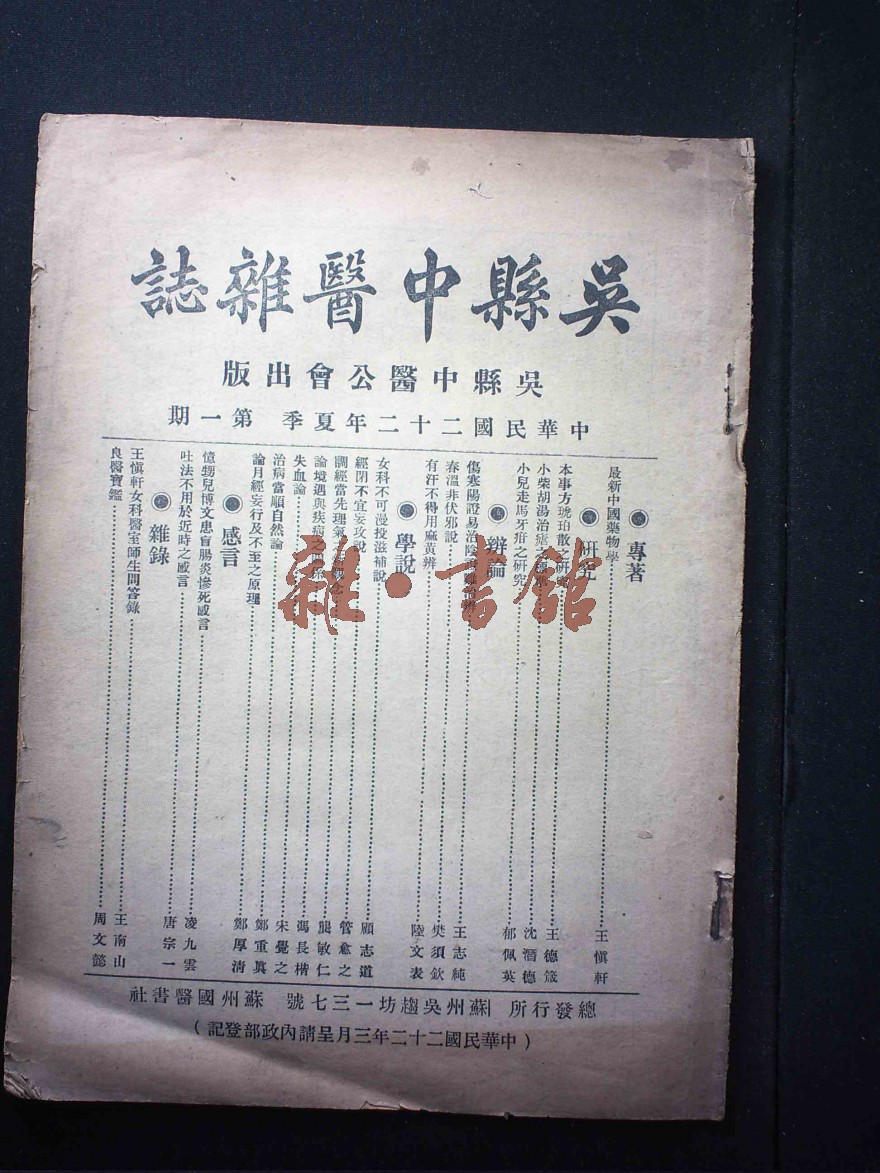 吳縣中醫雜誌
吳縣中醫公會出版
中華民國二十二年夏季 第一期
●專著
最新中國藥物學……王愼軒
●研究
本事方琥珀散之研究……王德箴
小柴胡湯治瘧之……沈潛德
小兒走馬牙疳之研究……郁佩英
●辯論
傷寒陽證易治陰證難治辨……王志純
春溫非伏邪說……樊須欽
有汗不得用麻黃辨……陸文表
●學說
女科不可漫投滋補說……顧志道
經閉不宜妄攻說……管愈之
調經當先理氣……龔敏仁
論境遇與疾病之關係……馮長楷
失血論……宋覺之
治病當順自然論……鄭重眞
論月經妄行及不至之原理……鄭厚淸
●感言
憶甥兒博文患盲腸炎慘死感言……凌九雲
吐法不用於近時之感言……唐宗一
●雜錄
王愼軒女科醫室師生問答錄……王南山
良醫寶鑑……周文懿
總發行所 蘇州吳趨坊一三七號 蘇州國醫書社
(中華民國二十二年三月呈請內政部登記)
雜·書館